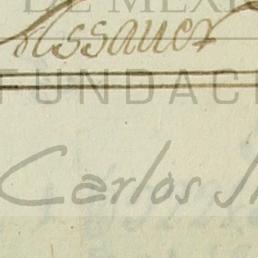 DE MEXI
Ussauer
FUNDAC
Carlos Sl